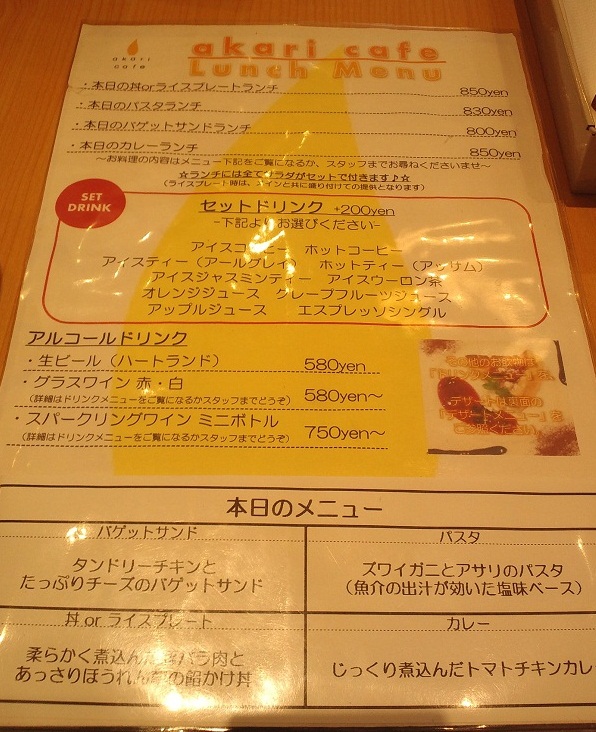 akari
cafe
akari cafe
Lunch Menu
・本日の丼orライスプレートランチ 850yen
・本日のパスタランチ 830yen
・本日のバゲットサンドランチ 800yen
・本日のカレーランチ 850yen
～お料理の内容はメニュー下記をご覧になるか、スタッフまでお尋ねくださいませ～
☆ランチには全てサラダがセットで付きます♪☆
(ライスプレート時は、メインと共に盛り付けての提供となります)
SET
DRINK
セットドリンク +200yen
-下記よりお選びください-
アイスコーヒー ホットコーヒー
アイスティー（アールグレイ） ホットティー（アッサム）
アイスジャスミンティー アイスウーロン茶
オレンジジュース グレープフルーツジュース
アップルジュース エスプレッソシングル
アルコールドリンク
・生ビール（ハートランド） 580yen
・グラスワイン 赤・白 580yen～
(詳細はドリンクメニューをご覧になるかスタッフまでどうぞ)
・スパークリングワイン ミニボトル 750yen～
(詳細はドリンクメニューをご覧になるかスタッフまでどうぞ)
その他のお飲物は
デザートは裏面の
「デザートメニュー」を
ご参照ください
本日のメニュー
バゲットサンド
タンドリーチキンと
たっぷりチーズのバゲットサンド
パスタ
ズワイガニとアサリのパスタ
（魚介の出汁が効いた塩味ベース）
丼 or ライスプレート
柔らかく煮込んだ バラ肉と
あっさりほうれん の餡かけ丼
カレー
じっくり煮込んだトマトチキンカレ